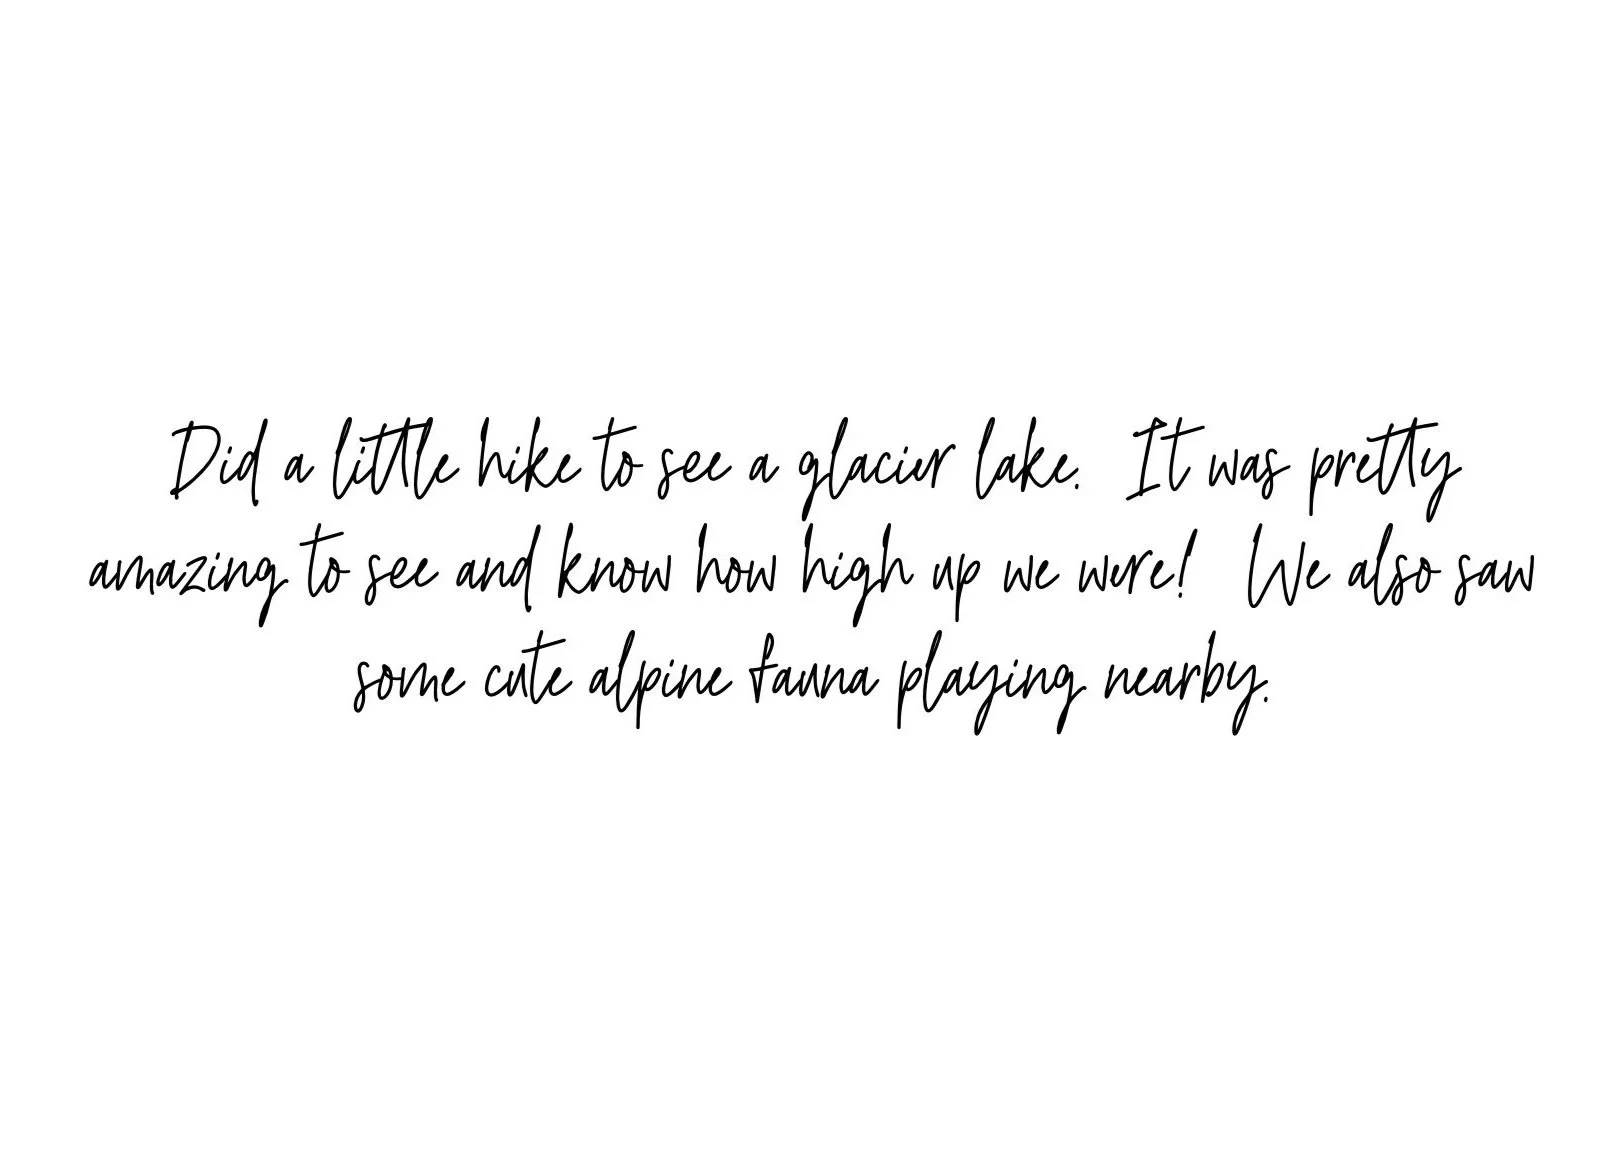 Did a little hike to see a glacier lake. It was pretty
amazing to see and know how high up we were! We also saw
some cute alpine fauna playing nearby.